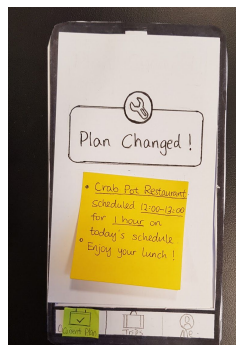 Plan Changed !
• Crab Pot Restaurant
scheduled 12:00-13:00
for 1 hour on
today's schedule
• Enjoy your lunch !
Current Plan
Trips
ME